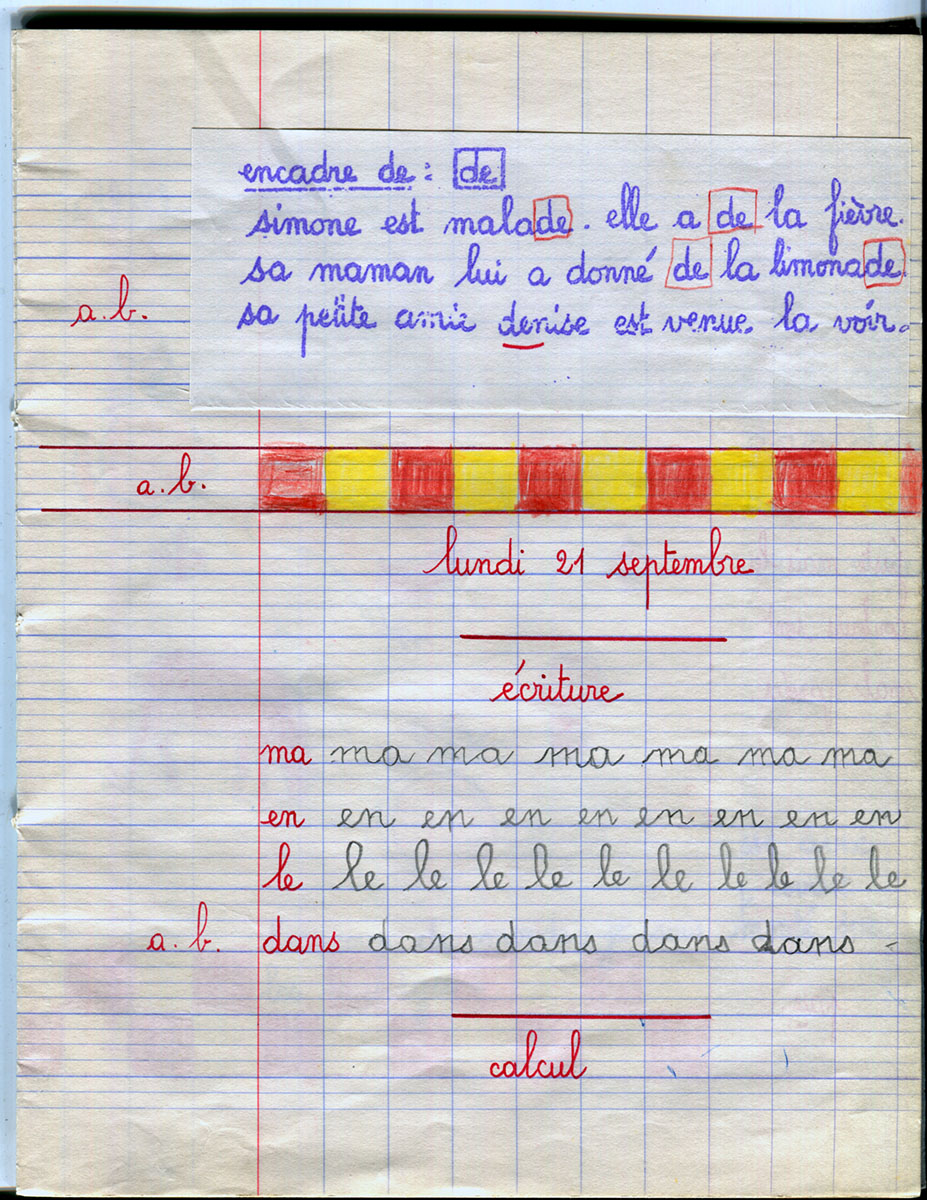 encadre de : de
simone est malade. elle a de la fièvre.
sa maman lui a donné de la limonade.
a.b.
sa petite amie denise est venue la voir.
a.b.
lundi 21 septembre
écriture
ma ma ma ma ma ma ma
en en en en en en en en en
le le le le le le le le le le
a.b. dans dans dans dans dans -
calcul